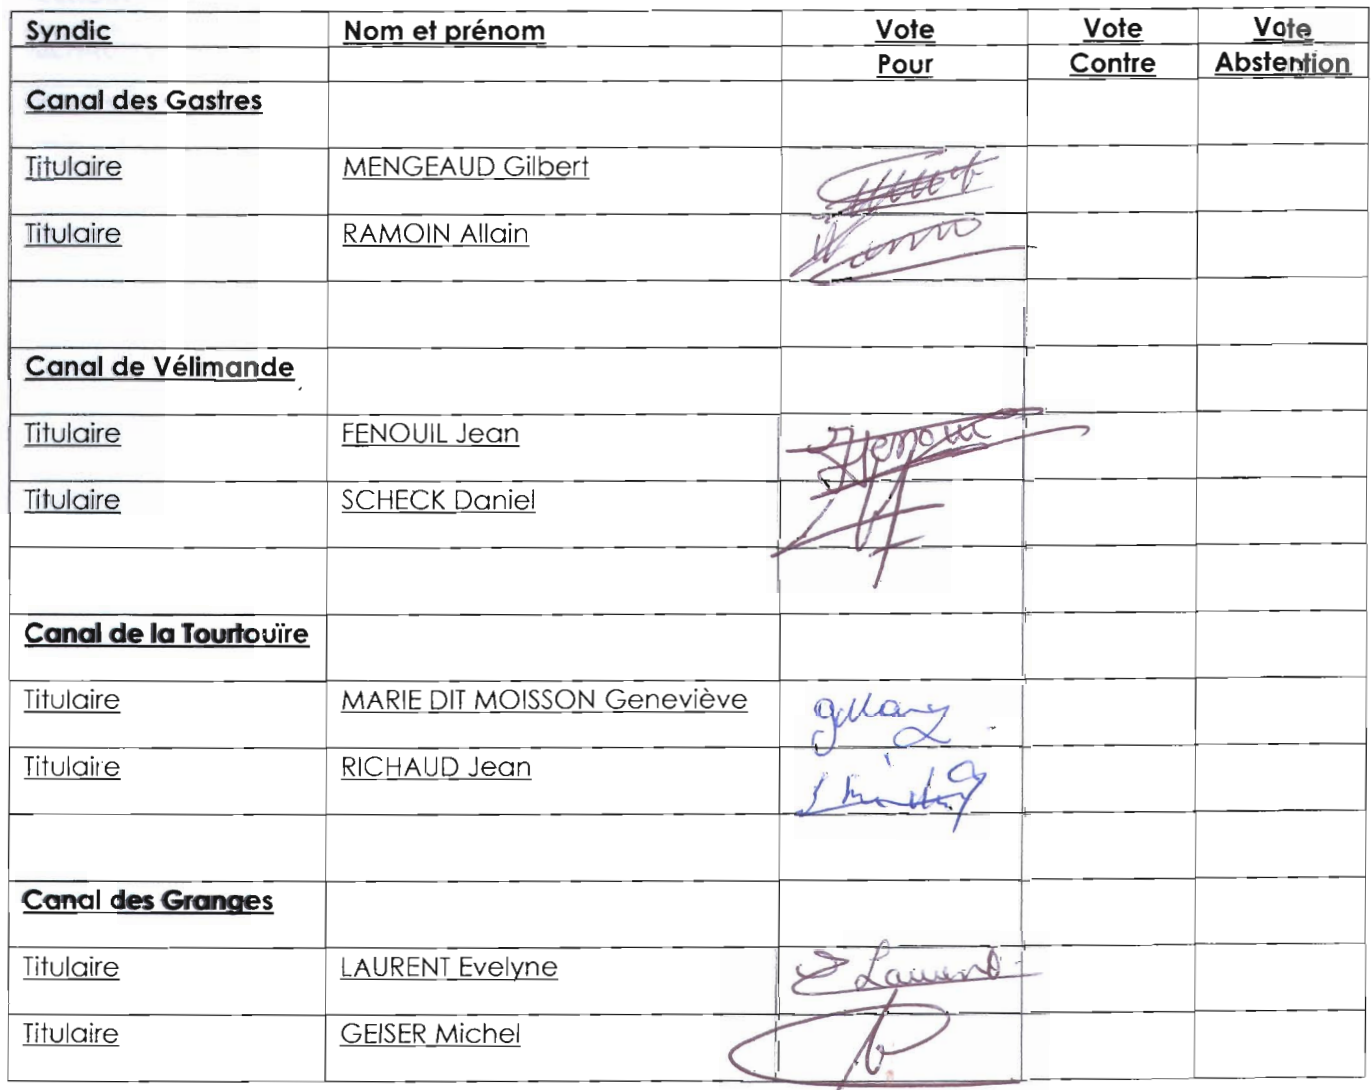 Syndic Nom et prénom Vote Vote Vote
Pour Contre Abstention
Canal des Gastres
Titulaire MENGEAUD Gilbert
Titulaire RAMOIN Allain
Canal de Vélimande
Titulaire FENOUIL Jean
Titulaire SCHECK Daniel
Canal de la Tourtouïre
Titulaire MARIE DIT MOISSON Geneviève
Titulaire RICHAUD Jean
Canal des Granges
Titulaire LAURENT Evelyne E Laurent
Titulaire GEISER Michel